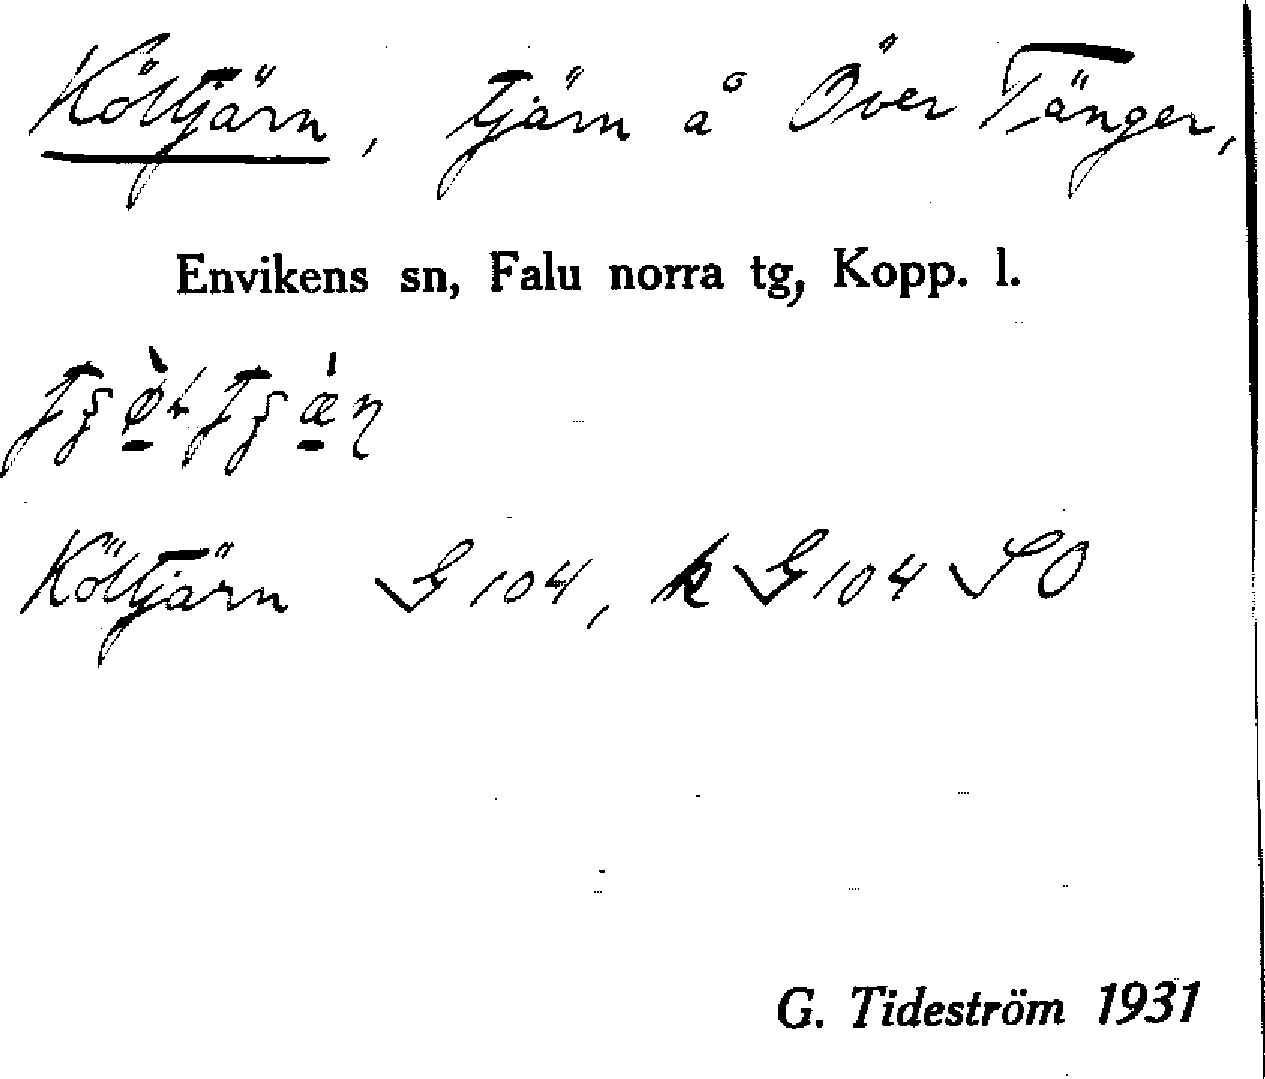 Költjärn, tjärn å Över Tänger,
Envikens sn, Falu norra tg, Kopp. l.
Költjärn G 104, k G 104 SO
G. Tideström 1931